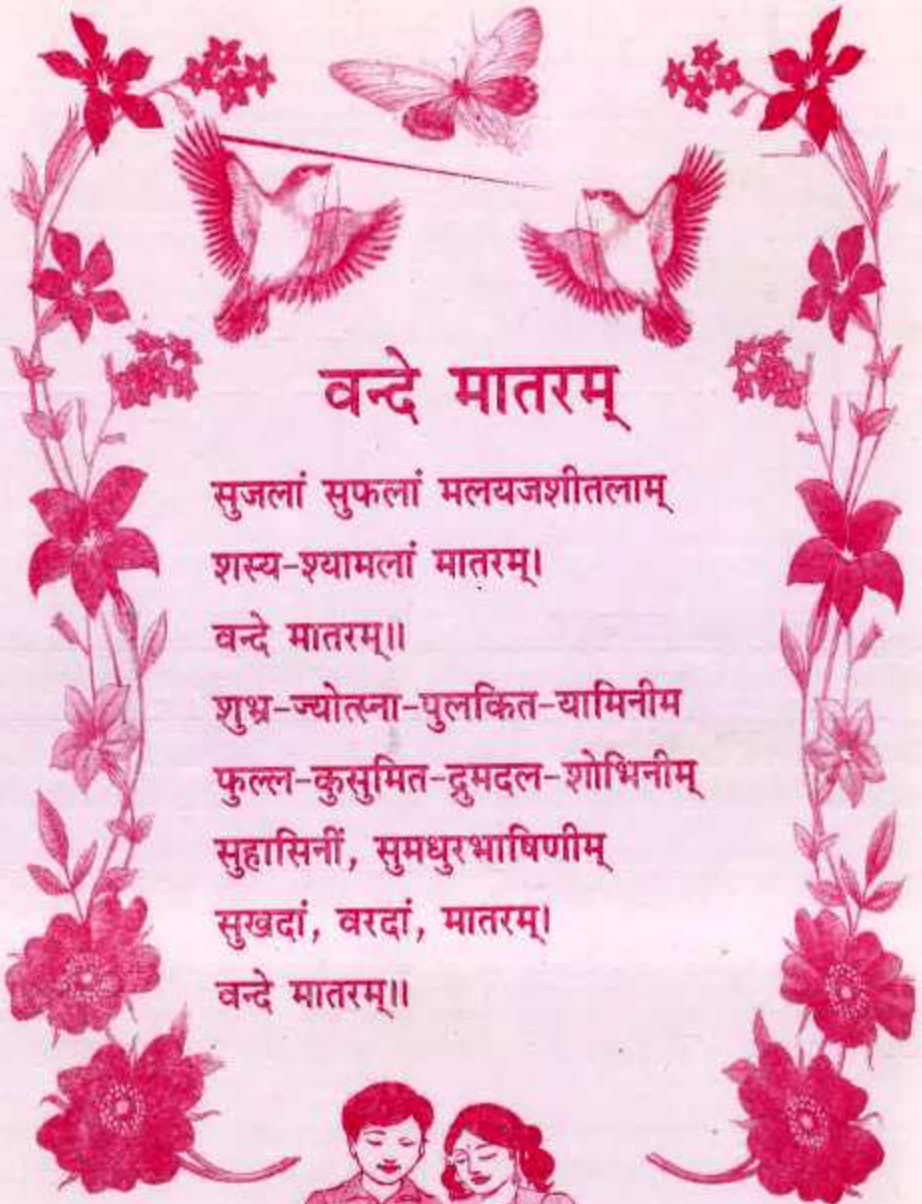 वन्दे मातरम्
सुजलां सुफलां मलयजशीतलाम्
शस्य-श्यामलां मातरम्।
वन्दे मातरम्॥
शुभ्र-ज्योत्स्ना-पुलकित-यामिनीम
फुल्ल-कुसुमित-द्रुमदल-शोभिनीम्
सुहासिनीं, सुमधुरभाषिणीम्
सुखदां, वरदां, मातरम्।
वन्दे मातरम्॥